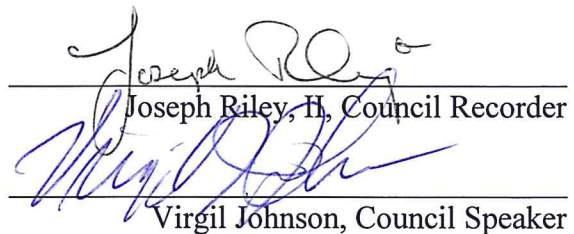 Joseph Riley
Joseph Riley, II, Council Recorder
Virgil Johnson, Council Speaker